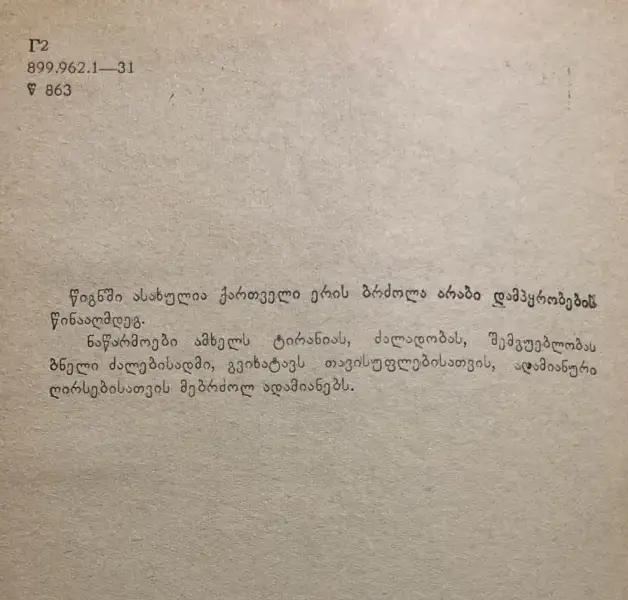 Г2
899.962.1—31
წ 863
წიგნში ასახულია ქართველი ერის ბრძოლა არაბი დამპყრობების
წინააღმდეგ.
ნაწარმოები ამხელს ტირანიას, ძალადობას, შემგუებლობას
ბნელი ძალებისადმი, გვიხატავს თავისუფლებისათვის, ადამიანური
ღირსებისათვის მებრძოლ ადამიანებს.